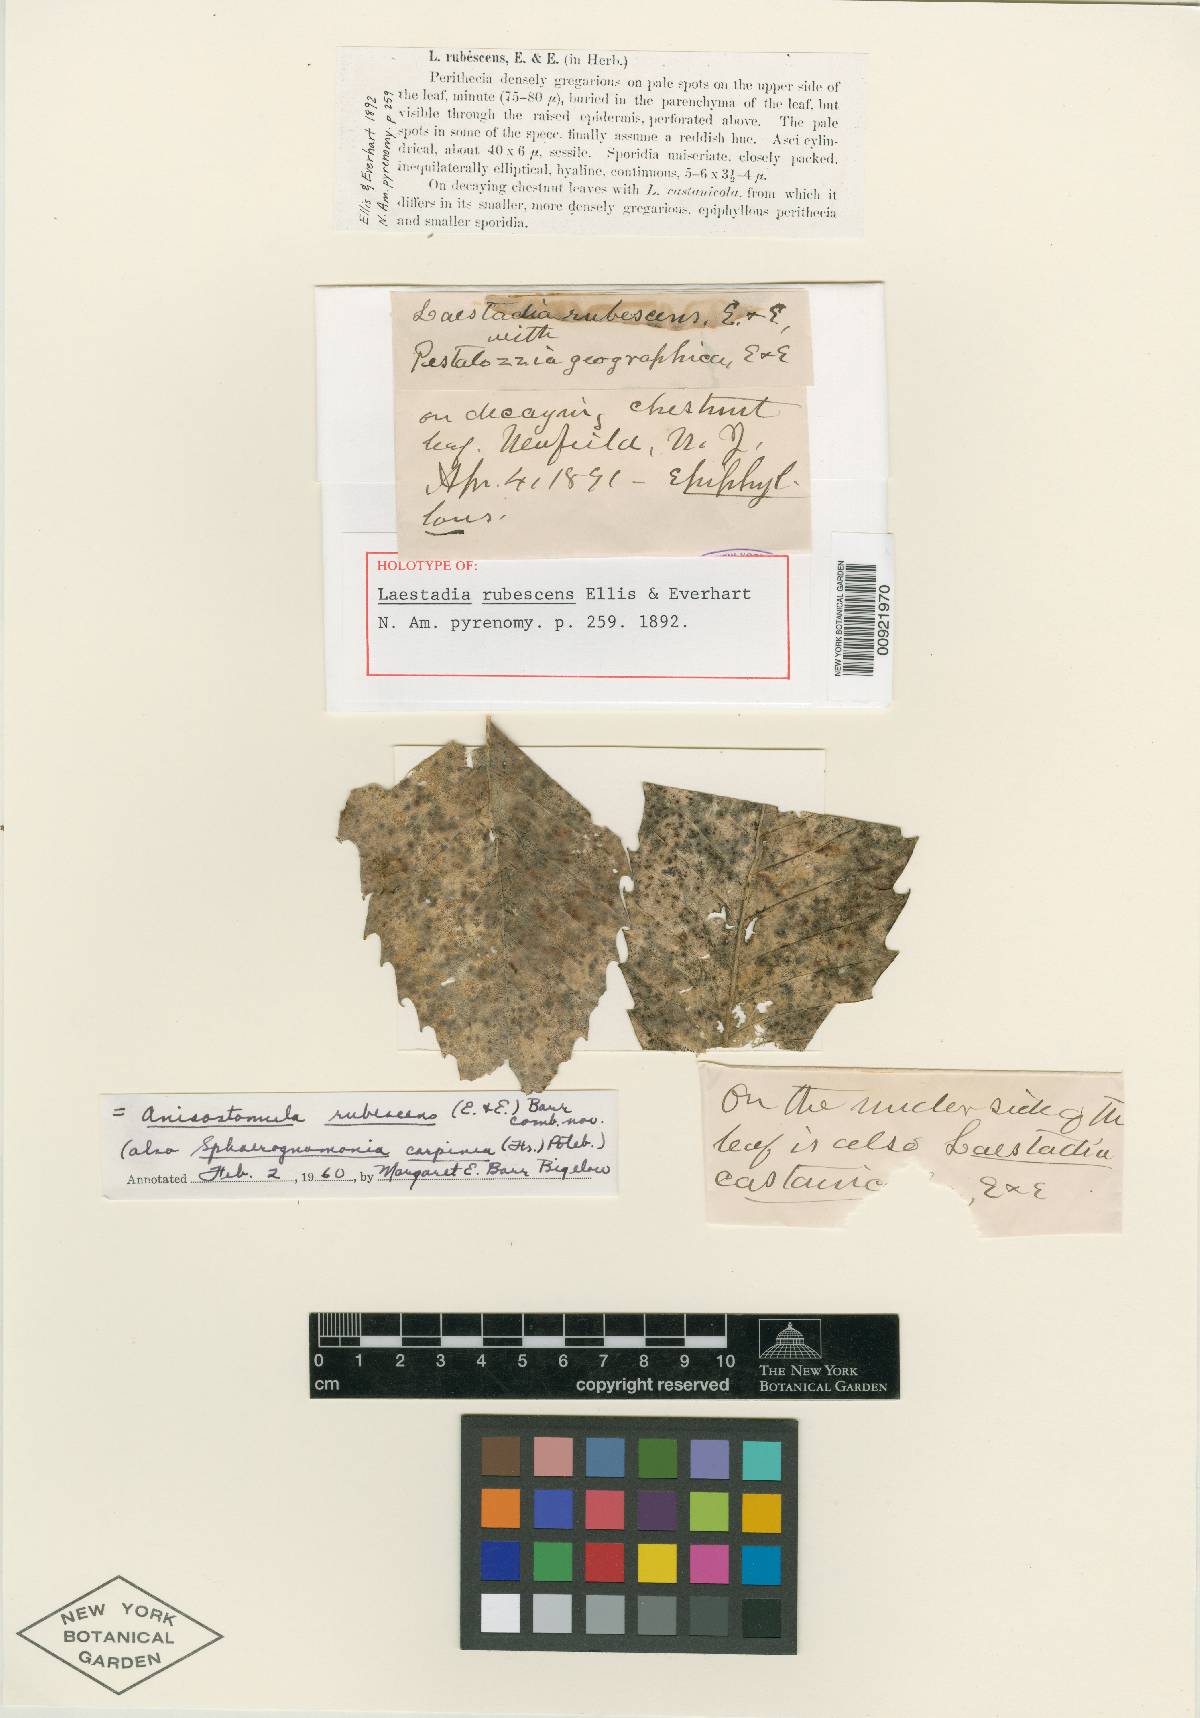 L. rubescens, E. & E. (in Herb.)
Perithecia densely gregarious on pale spots on the upper side of
the leaf, minute (75–80 µ), buried in the parenchyma of the leaf, but
visible through the raised epidermis, perforated above. The pale
spots in some of the specc. finally assume a reddish hue. Asci cylin-
drical, about 40 x 6 µ, sessile. Sporidia uniseriate, closely packed,
inequilaterally elliptical, hyaline, continuous, 5–6 x 3½–4 µ.
On decaying chestnut leaves with L. castanicola, from which it
differs in its smaller, more densely gregarious, epiphyllous perithecia
and smaller sporidia.
Ellis & Everhart 1892
N. Am. pyrenomy. p 259
Laestadia rubescens, E. & E,
with
Pestalozzia geographica, E & E
on decaying chestnut
leaf. Newfield, N. J.
Apr. 4, 1891 – epiphyl-
lous.
HOLOTYPE OF:
Laestadia rubescens Ellis & Everhart
N. Am. pyrenomy. p. 259. 1892.
NEW YORK BOTANICAL GARDEN
00921970
= Anisostomula rubescens (E. & E.) Barr
comb. nov.
(also Sphaerognomonia carpinea (Fr.) Poteb.)
Annotated Feb. 2, 1960, by Margaret E. Barr Bigelow
On the under side of the
leaf is also Laestadia
castanic , E & E
0 1 2 3 4 5 6 7 8 9 10
cm copyright reserved
THE NEW YORK
BOTANICAL GARDEN
NEW YORK
BOTANICAL
GARDEN